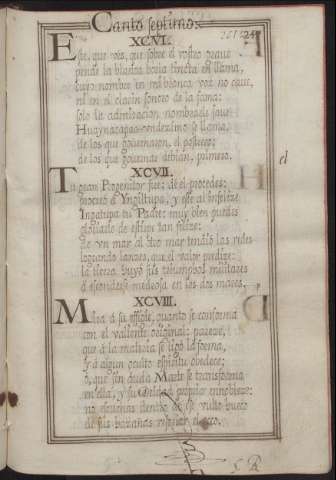 Canto septimo.
XCVI.
Este, que veis, que sobre el rostro graue
pende la blanca barba
cuyo nombre en no caue,
ni en el clarin sonoro de la fama:
solo la admiracion nombrarle saue
Huaynacapac se llama,
de los que gouernaron, el postrero;
de los que gouernar debian, primero.
XCVII.
Tu gran Progenitor fue; de el procedes;
procreó á Ynga, y este al infelize
tu Padre: muy bien puedes
gloriarte de tan felize:
de vn mar al otro mar tendió las redes
logrando lances, que el valor predize:
la tierra huyó sus triumphos militares
á esconderse medrosa en los dos mares.
el
XCVIII.
Mira á su effigie, quanto se conforma
con el valiente original: parece,
que á la materia se ligó la forma,
y á algun oculto espiritu obedece;
ó, que sin duda Marte se transforma
en ella, y su propio ennoblece:
no escuchas dentro de ese vulto hueco
de sus hazañas resonar el eco.